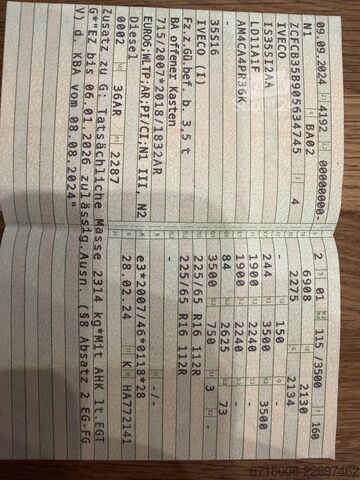 09.09.2024 4192 00000000-
N1 BA02
ZCFCB35B905634745 4
IVECO
IS35SI2AA
LD11A1F
AM4CA4PR3GK
-
35S16
IVECO (I)
Fz.z.Gü.bef. b. 3,5 t
BA offener Kasten
715/2007*2018/1832AR
EURO6;WLTP;AR;PI/CI;N1 III, N2
Diesel
0002 36AR 2287
Zusatz zu G: Tatsächliche Masse 2314 kg*Mit AHK lt.EGT
G*"EZ bis 06.01.2026 zulässig.Ausn. (§8 Absatz 2 EG-FG
V) d. KBA vom 08.08.2024"
2 01 115 /3500 160
6908 2130
2275 2134
- 150 -
244 3500 3500
1900 2240 -
1900 2240 -
84 2625 73
3500 750 3 -
225/65 R16 112R
225/65 R16 112R
-
-/-
e3*2007/46*0118*28
28.02.24 K HA772141
8718008-22697462